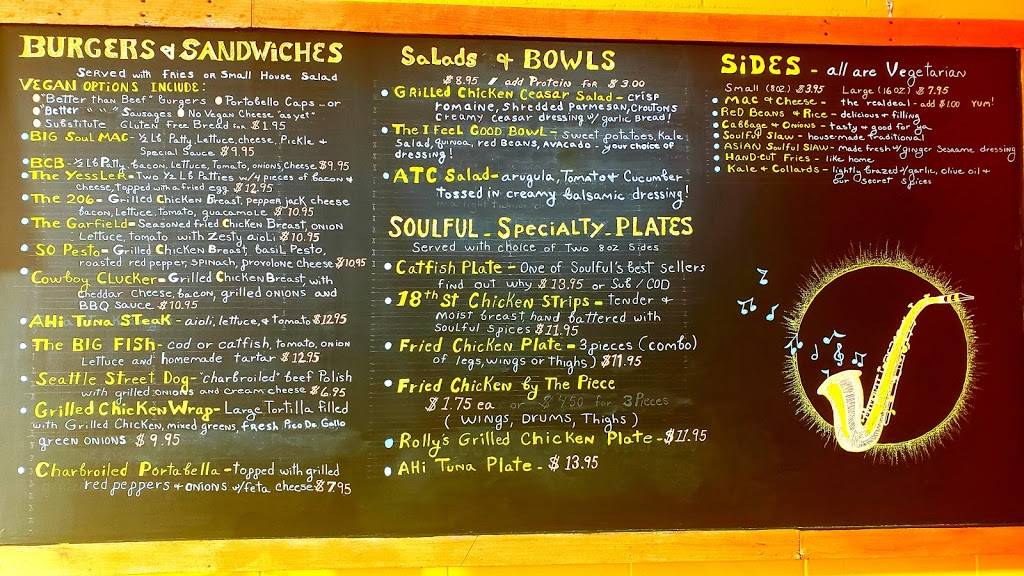 BURGERS & SANDWICHES
SERVED WITH FRIES OR SMALL HOUSE SALAD
VEGAN OPTIONS INCLUDE:
"Better than Beef" Burgers • Portobello Caps - or
"Better " " " Sausages • No Vegan Cheese "as yet"
Substitute Gluten free Bread for $1.95
• BIG SOUL MAC - ½ Lb Patty, Lettuce, cheese, Pickle &
Special Sauce $9.95
• BCB - ½ Lb Patty, bacon, Lettuce, Tomato, onions, Cheese $9.95
• The Yessler - Two ½ Lb Patties w/4 pieces of bacon &
cheese, topped with a fried egg. $12.95
• The 206 - Grilled Chicken Breast, pepper jack cheese
bacon, Lettuce, tomato, guacamole $10.95
• The Garfield - Seasoned fried Chicken Breast, onion
Lettuce, tomato with Zesty aioli $10.95
• SO Pesto - Grilled Chicken Breast, basil Pesto,
roasted red pepper, spinach, provolone cheese $10.95
• Cowboy Clucker - Grilled Chicken Breast, with
cheddar cheese, bacon, grilled onions and
BBQ sauce $10.95
• AHi Tuna STeak - aioli, lettuce, & tomato $12.95
• The BIG FISh - cod or catfish, tomato, onion
Lettuce and homemade tartar $12.95
• Seattle Street Dog - "charbroiled" beef Polish
with grilled onions and cream cheese $6.95
• Grilled Chicken Wrap - Large Tortilla filled
with Grilled Chicken, mixed greens, fresh Pico De Gallo
green onions $9.95
• Charbroiled Portabella - topped with grilled
red peppers & onions w/feta cheese $7.95
SaLads & BOWLS
$8.95 // add Protein for $3.00
• Grilled Chicken Ceasar Salad - crisp
romaine, Shredded Parmesan, croutons
creamy ceasar dressing w/ garlic Bread!
• The I Feel GOOD BOWL - sweet potatoes, Kale
Salad, quinoa, red Beans, avacado - your choice of
dressing!
• ATC Salad - arugula, Tomato & Cucumber
tossed in creamy balsamic dressing!
SOULFUL - Specialty - PLATES
Served with choice of Two 8oz Sides
• Catfish Plate - One of Soulful's best sellers
find out why $13.95 or Sub / COD
• 18th St Chicken Strips - tender &
moist breast hand battered with
Soulful spices $11.95
• Fried Chicken Plate - 3 pieces (combo)
of legs, wings or thighs) $11.95
• Fried Chicken by The Piece
$1.75 ea or $4.50 for 3 Pieces
( Wings, Drums, Thighs )
• Rolly's Grilled Chicken Plate - $11.95
• AHi Tuna Plate - $13.95
SiDES - all are Vegetarian
Small (8oz) $3.95 Large (16oz) $7.95
• Mac & Cheese - the real deal - add $1.00 Yum!
• Red Beans & Rice - delicious & filling
• Cabbage & Onions - tasty & good for ya
• Soulful Slaw - house-made traditional
• ASIAN Soulful SLAW - made fresh w/ginger Sesame dressing
• Hand-Cut Fries - like home
• Kale & Collards - lightly brazed w/garlic, olive oil &
our secret spices